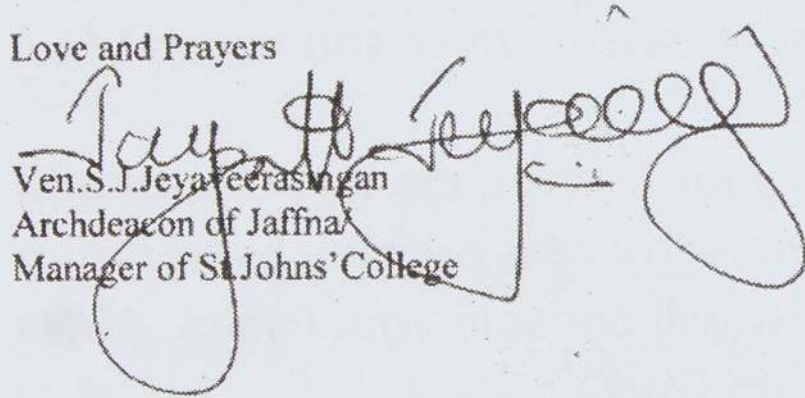 Love and Prayers
Ven.S.J.Jeyaveerasingan
Archdeacon of Jaffna/
Manager of St.Johns'College